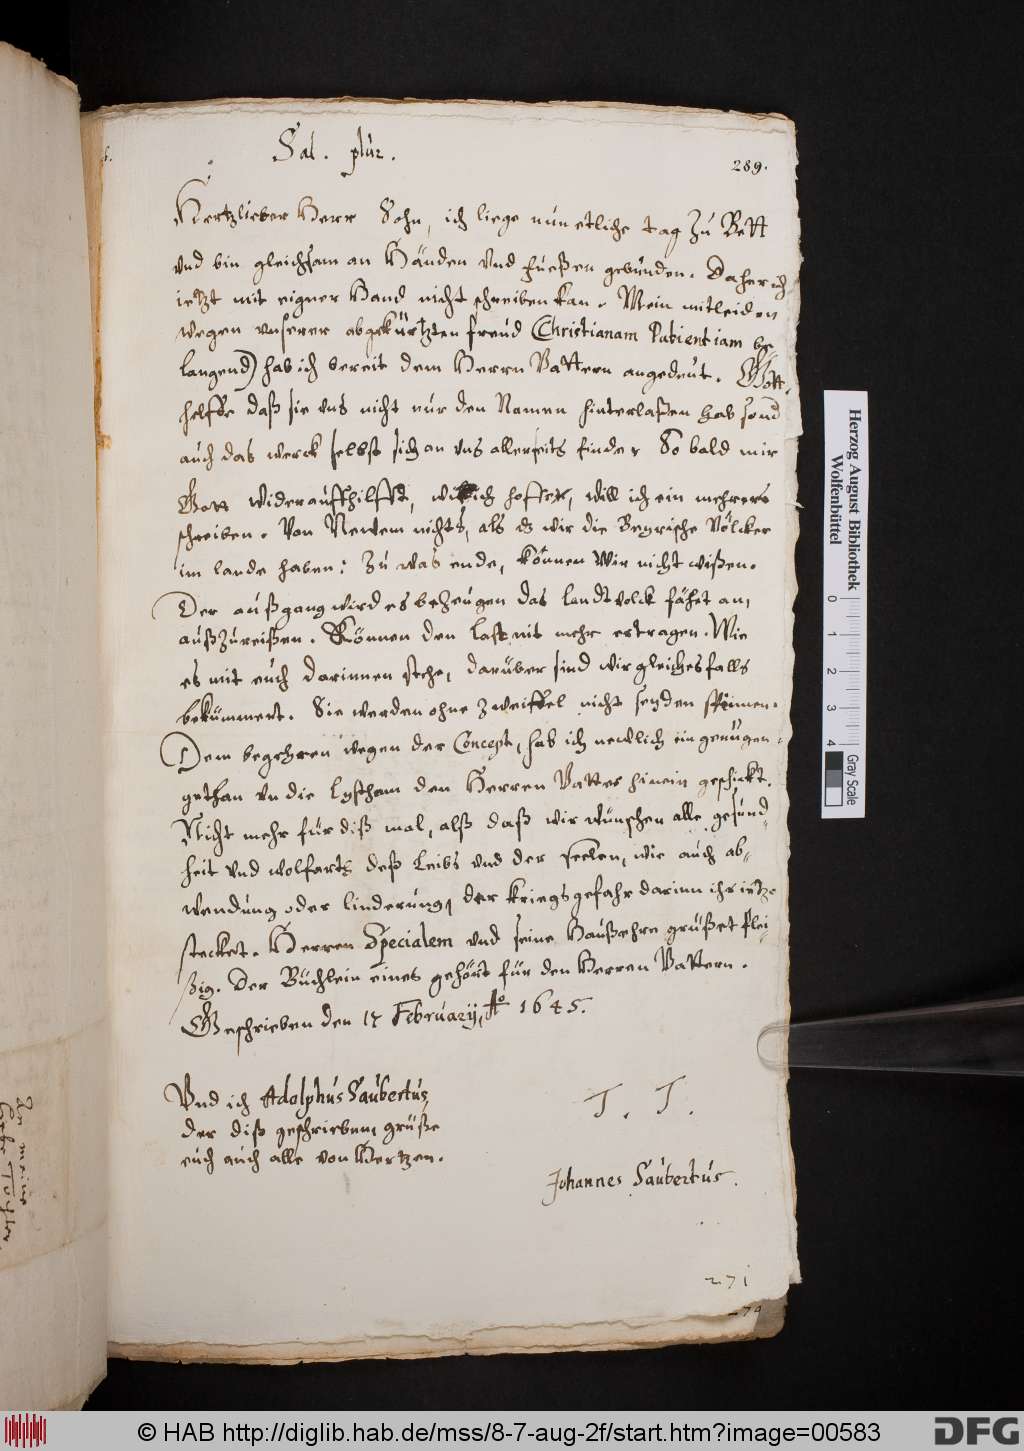 Sal. plur.
289.
Hertzlieber Herr Sohn, ich liege nun etliche tag zu Bett
vnd bin gleichsam an Händen vnd füeßen gebunden. Daher ich
ietzt mit eigner Hand nicht schreiben kan. Mein mitleiden
wegen vnserer abgekürtzten freud (Christianam Patientiam be-
langend) hab ich bereit dem Herrn Vattern angedeut. Gott
helffe daß sie vns nicht nur den Namen hinterlaßen hab sond
auch das werck selbst sich an vns allerseits finde. So bald mir
Gott wideraufhilfft, ich hoffe, will ich ein mehrers
schreiben. Von Newem nichts, als dz wir die Beyrische Völcker
im lande haben: Zu was ende, können wir nicht wißen.
Der außgang wird es bezeugen das landtvolck fähet an,
außzureißen. Können den last nit mehr ertragen. Wie
es mit euch darinnen stehe, darüber sind wir gleichesfalls
bekümmert. Sie werden ohne zweiffel nicht seyden spinnen.
Dem begehren wegen der Concept, hab ich neulich ein genügen
gethan vn die den Herren Vatter hinein geschickt.
Nicht mehr für diß mal, alß daß wir wünschen alle gesund-
heit vnd wolfarts deß Leibs vnd der seelen, wie auch ab-
wendung oder linderung, der kriegsgefahr darinn ihr ietzo
stecket. Herren Specialem vnd seine Haußehre grüßet flei-
ßig. Der Büchlein eines gehört für den Herren Vattern.
Geschrieben den 17 February, Aº 1645.
Vnd ich Adolphus Saubertus,
der diß geschrieben, grüße
euch auch alle von Hertzen.
T. T.
Johannes Saubertus.
271
Herzog August Bibliothek
Wolfenbüttel
0 1 2 3 4
Gray Scale
© HAB http://diglib.hab.de/mss/8-7-aug-2f/start.htm?image=00583
DFG